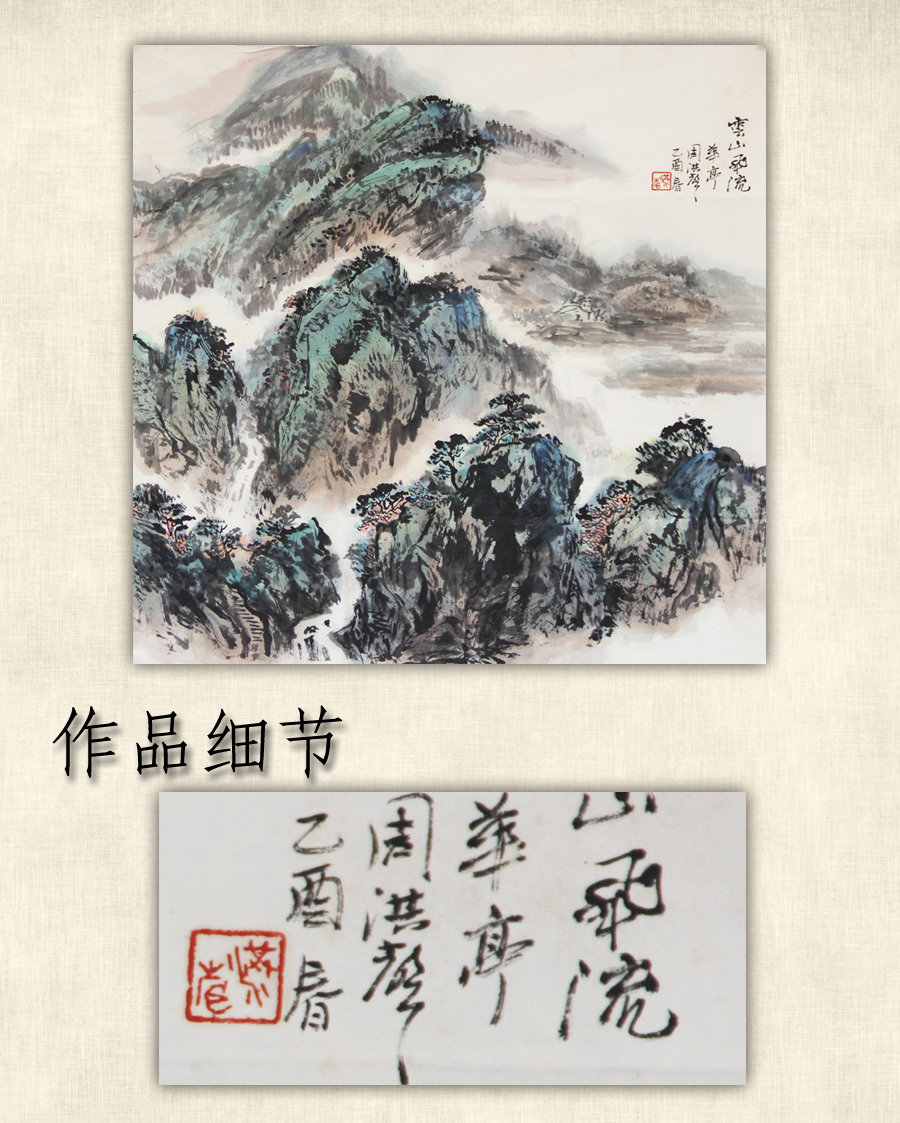 雲山飛流
華亭
周洪聲
乙酉春
作品细节
山飛流
華亭
周洪聲
乙酉春